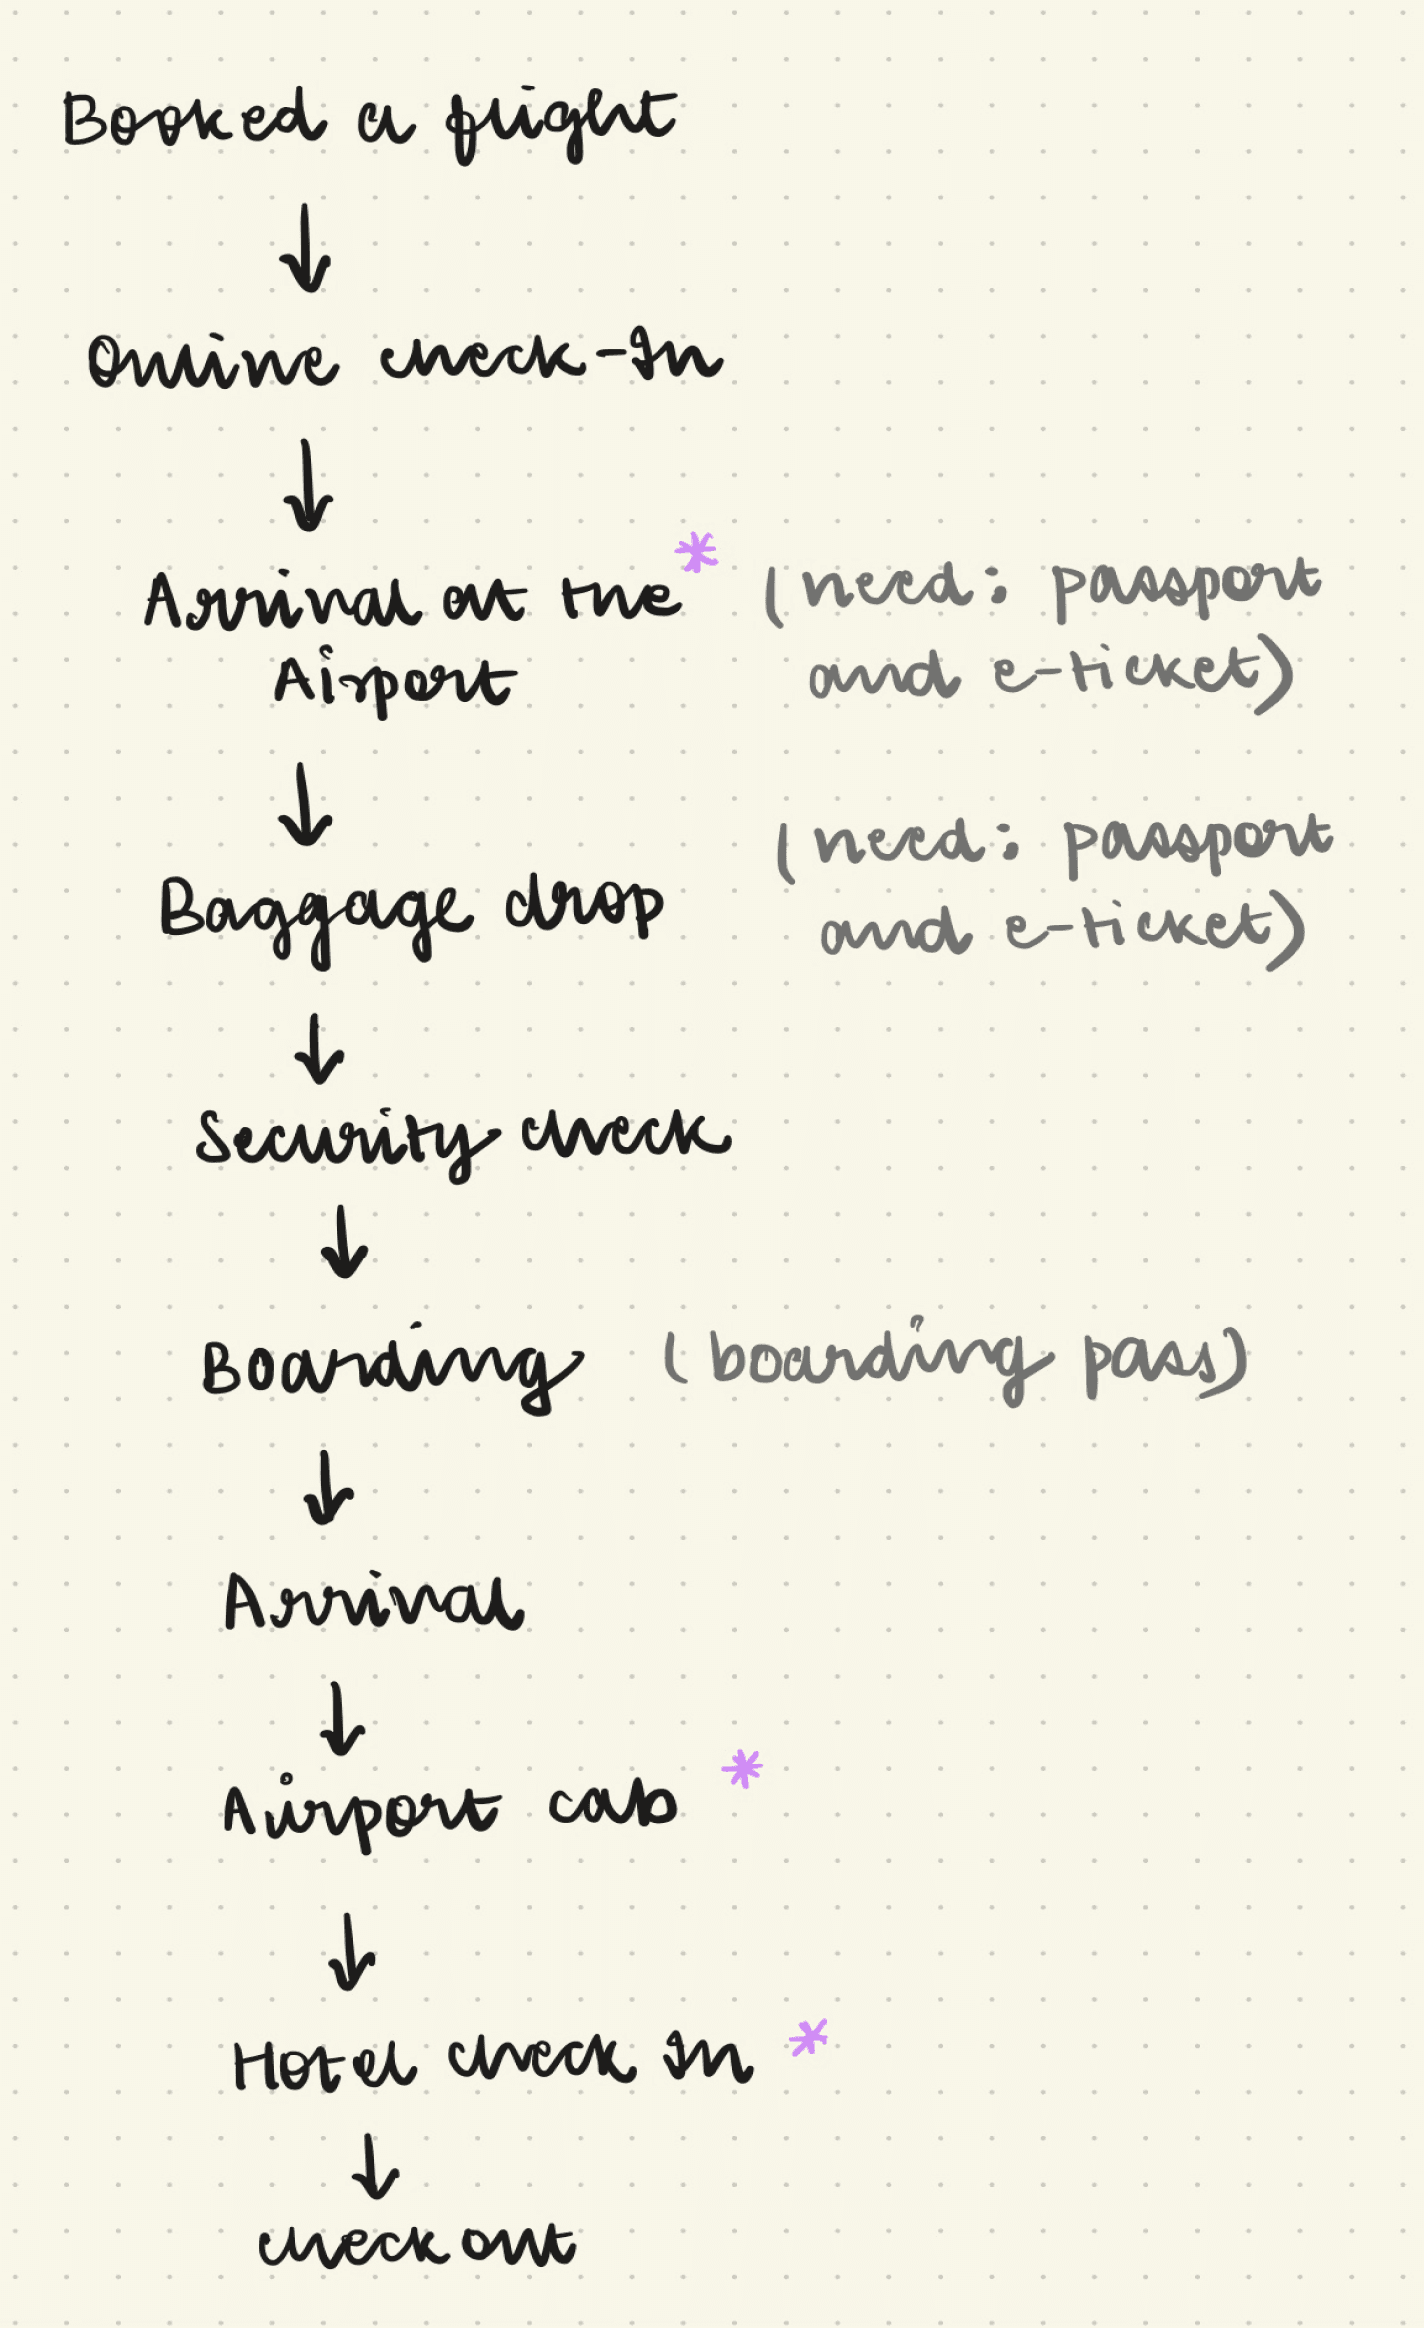 Booked a flight
↓
Online check-In
↓
Arrival at the * (need: passport
Airport and e-ticket)
↓
(need: passport
Baggage drop and e-ticket)
↓
Security check
↓
Boarding (boarding pass)
↓
Arrival
↓
Airport cab *
↓
Hotel check In *
↓
check out